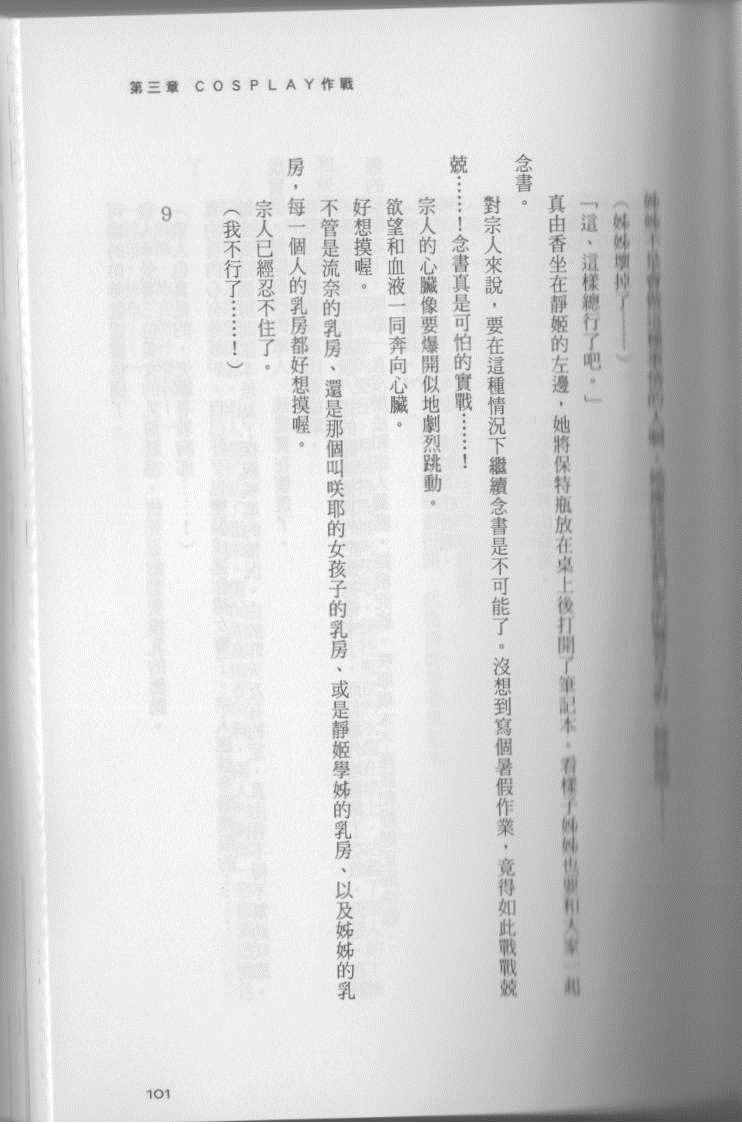 第三章 COSPLAY作戰
（姊姊壞掉了……）
「這、這樣總行了吧。」
真由香坐在靜姬的左邊，她將保特瓶放在桌上後打開了筆記本。看樣子姊姊也要和大家一起
念書。
對宗人來說，要在這種情況下繼續念書是不可能了。沒想到寫個暑假作業，竟得如此戰戰兢
兢……！念書真是可怕的實戰……！
宗人的心臟像要爆開似地劇烈跳動。
欲望和血液一同奔向心臟。
好想摸喔。
不管是流奈的乳房、還是那個叫咲耶的女孩子的乳房、或是靜姬學姊的乳房、以及姊姊的乳
房，每一個人的乳房都好想摸喔。
宗人已經忍不住了。
（我不行了……！）
9
101